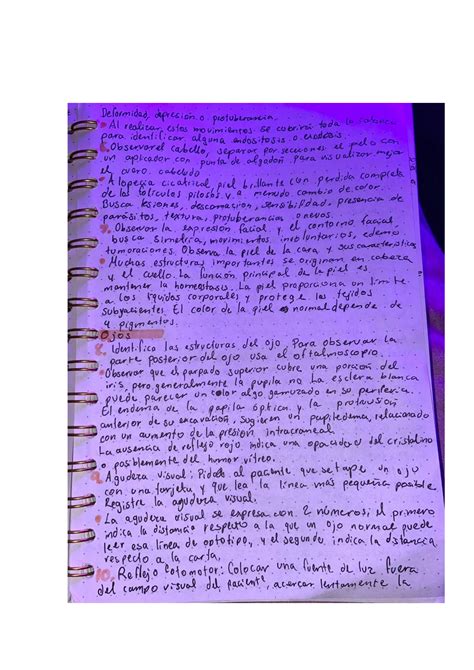 Deformidad, depresión o protuberancia.
• Al realizar estos movimientos se cubrirá toda la cabeza
para identificar alguna endositosis o exodosis.
6. Observar el cabello, separar por secciones el pelo con
un aplicador con punta de algodón para visualizar mejor
el cuero cabelludo
• Alopecia cicatrical, piel brillante con perdida completa
de los folículos pilosos y a menudo cambio de color.
Busca lesiones, descamación, sensibilidad, presencia de
parásitos, textura, protuberancias o nevos.
7. Observar la expresión facial y el contorno facial,
busca simetría, movimientos involuntarios, edema,
tumoraciones. Observa la piel de la cara y sus características
• Muchas estructuras importantes se originan en cabeza
y el cuello. La función principal de la piel es
mantener la homeostasis. La piel proporciona un limite
a los líquidos corporales y protege los tejidos
subyacentes. El color de la piel normal depende de
4 pigmentos.
Ojos
8. Identifica las estructuras del ojo. Para observar la
parte posterior del ojo usa el oftalmoscopio.
• Observar que el parpado superior cubre una porción del
iris, pero generalmente la pupila no. La esclera blanca
puede parecer un color algo gamuzado en su periferia.
El endema de la papila óptica y la protrusión
anterior de su excavación, sugieren un papiledema, relacionado
con un aumento de la presión intracraneal.
La ausencia de reflejo rojo indica una opacidad del cristalino
o posiblemente del humor vitreo.
9. Agudeza visual: Pidale al paciente que se tape un ojo
con una tarjeta y que lea la línea más pequeña posible
Registre la agudeza visual.
• La agudeza visual se expresa con 2 números; el primero
indica la distancia respecto a la que un ojo normal puede
leer esa línea de optotipo, y el segundo indica la distancia
respecto a la carta.
10. Reflejo fotomotor: Colocar una fuente de luz fuera
del campo visual del paciente, acercar lentamente la